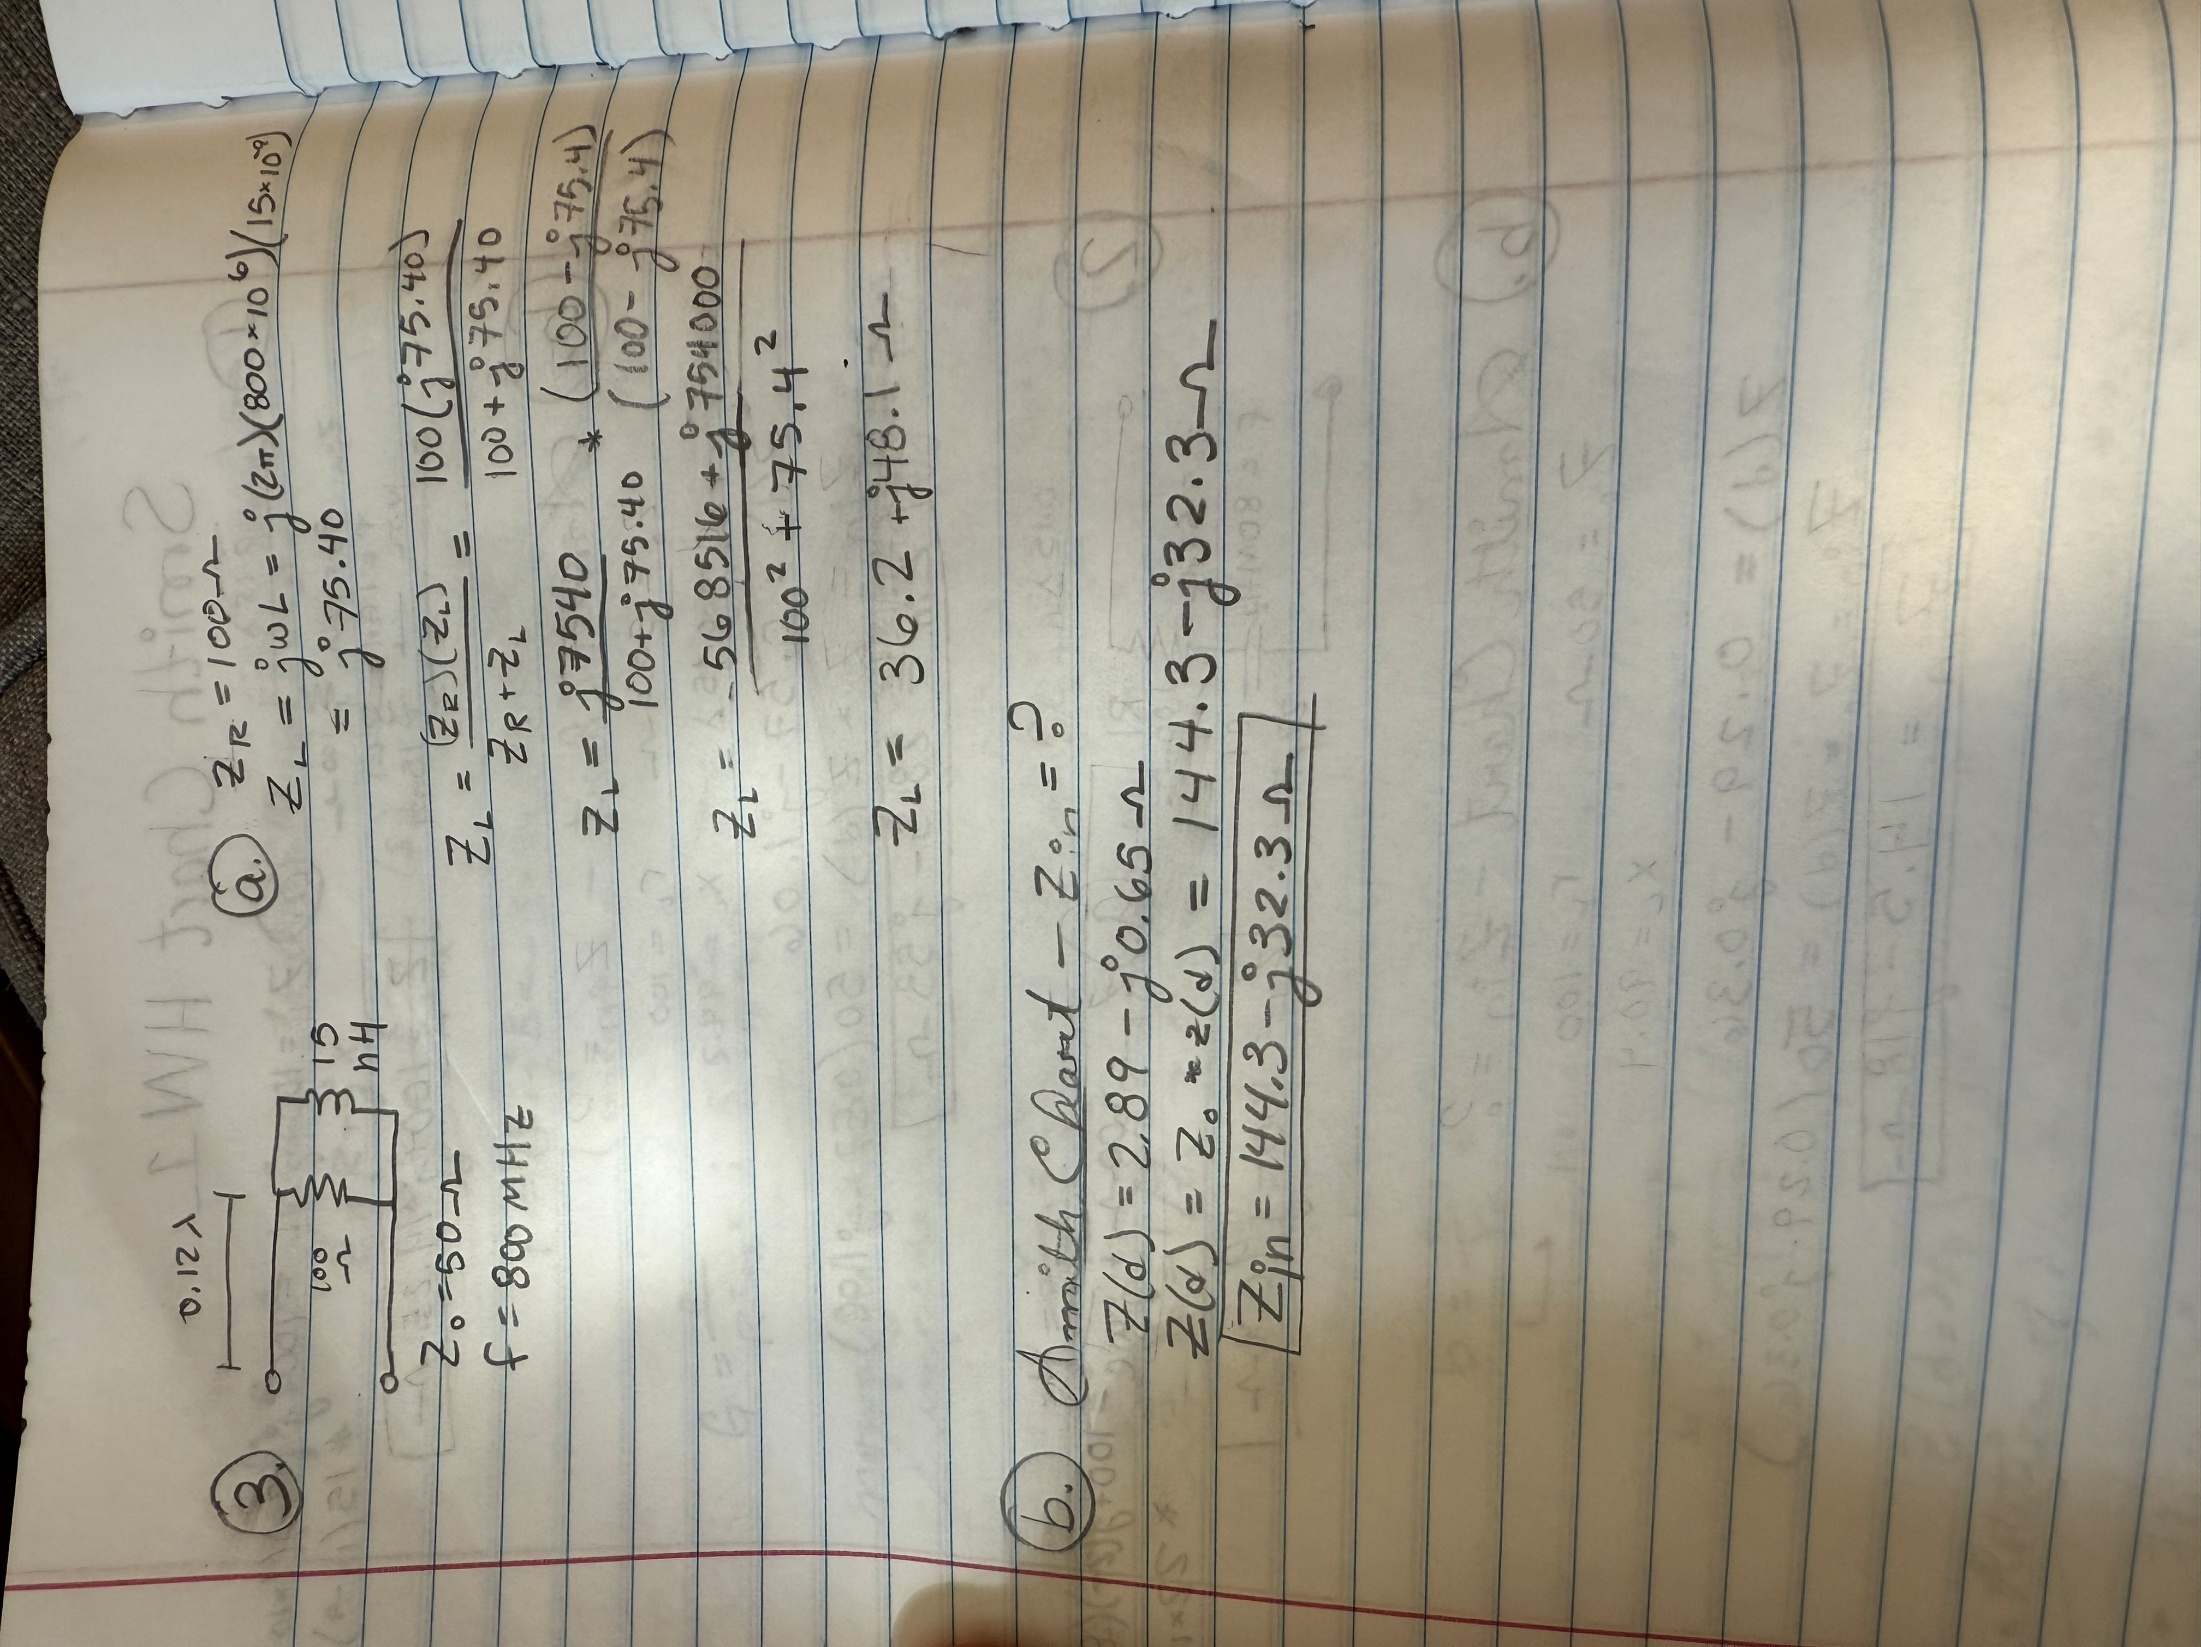 3.
0.12λ
100
Ω
15
nH
Z₀ = 50Ω
f = 800 MHz
a. Z_R = 100Ω
Z_L = jωL = j(2π)(800×10⁶)(15×10⁻⁹)
= j75.40
Z_L = (Z_R)(Z_L) / Z_R + Z_L = 100(j75.40) / 100 + j75.40
Z_L = j7540 / 100+j75.40 * (100 - j75.4) / (100 - j75.4)
Z_L = 568516 + j754000 / 100² + 75.4²
Z_L = 36.2 + j48.1 Ω
b. Smith Chart - Zin = ?
Z(d) = 2.89 - j0.65 Ω
Z(d) = Z₀ * z(d) = 144.3 - j32.3 Ω
Zin = 144.3 - j32.3 Ω